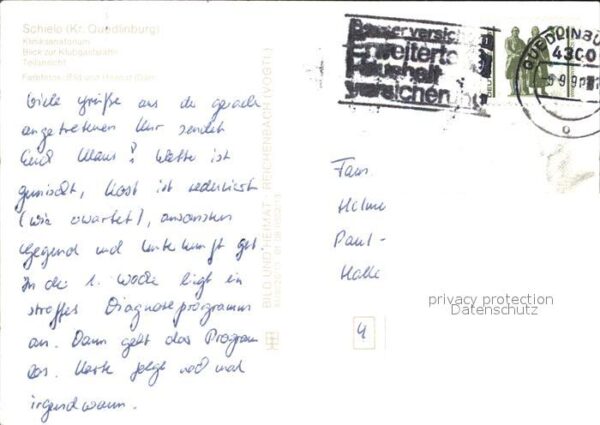 Schielo (Kr. Quedlinburg)
Kliniksanatorium
Blick zur Klubgaststätte
Teilansicht
Farbfotos: Bild und Heimat
Viele Grüße aus der gerade
angetretenen Kur sendet
Euch Klaus! Wetter ist
gemischt, Kost ist reduziert
(wie erwartet), ansonsten
Gegend und Unterkunft gut.
In der 1. Woche liegt ein
straffes Diagnoseprogramm
an. Dann geht das Programm
los. Karte folgt noch mal
irgendwann.
BILD UND HEIMAT · REICHENBACH (VOGTL)
Besser versichert
Erweiterte
Haushalt
versicherung
QUEDLINBURG
4300
Fam.
Helmut
Paul-
Halle
4
privacy protection
Datenschutz